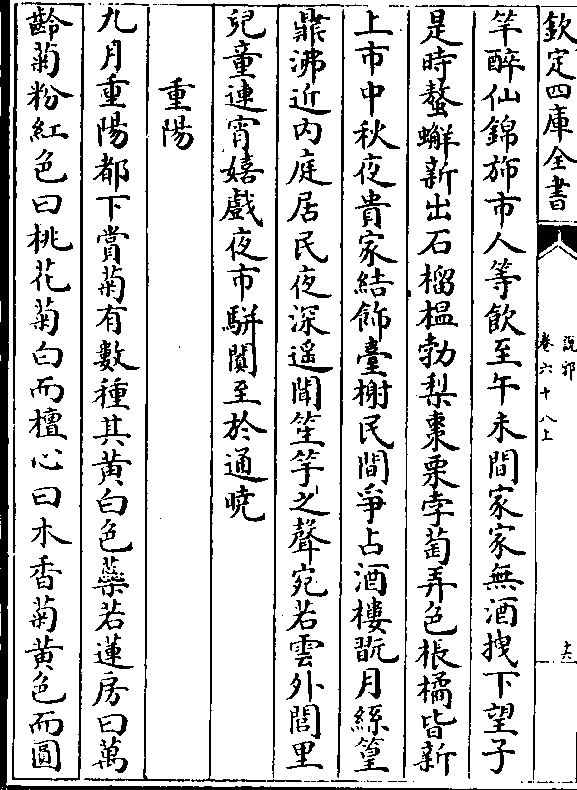 欽定四庫全書
說郛
卷六十八上
竿醉仙錦斾市人等飲至午未間家家無酒拽下望子
是時螯蠏新出石榴榲勃梨棗栗孛萄弄色棖橘皆新
上市中秋夜貴家結飾臺榭民間爭占酒樓翫月絲篁
鼎沸近内庭居民夜深遥聞笙竽之聲宛若雲外閭里
兒童連宵嬉戲夜市駢闐至於通曉
重陽
九月重陽都下賞菊有數種其黄白色蘂若蓮房曰萬
齡菊粉紅色曰桃花菊白而檀心曰木香菊黄色而圓